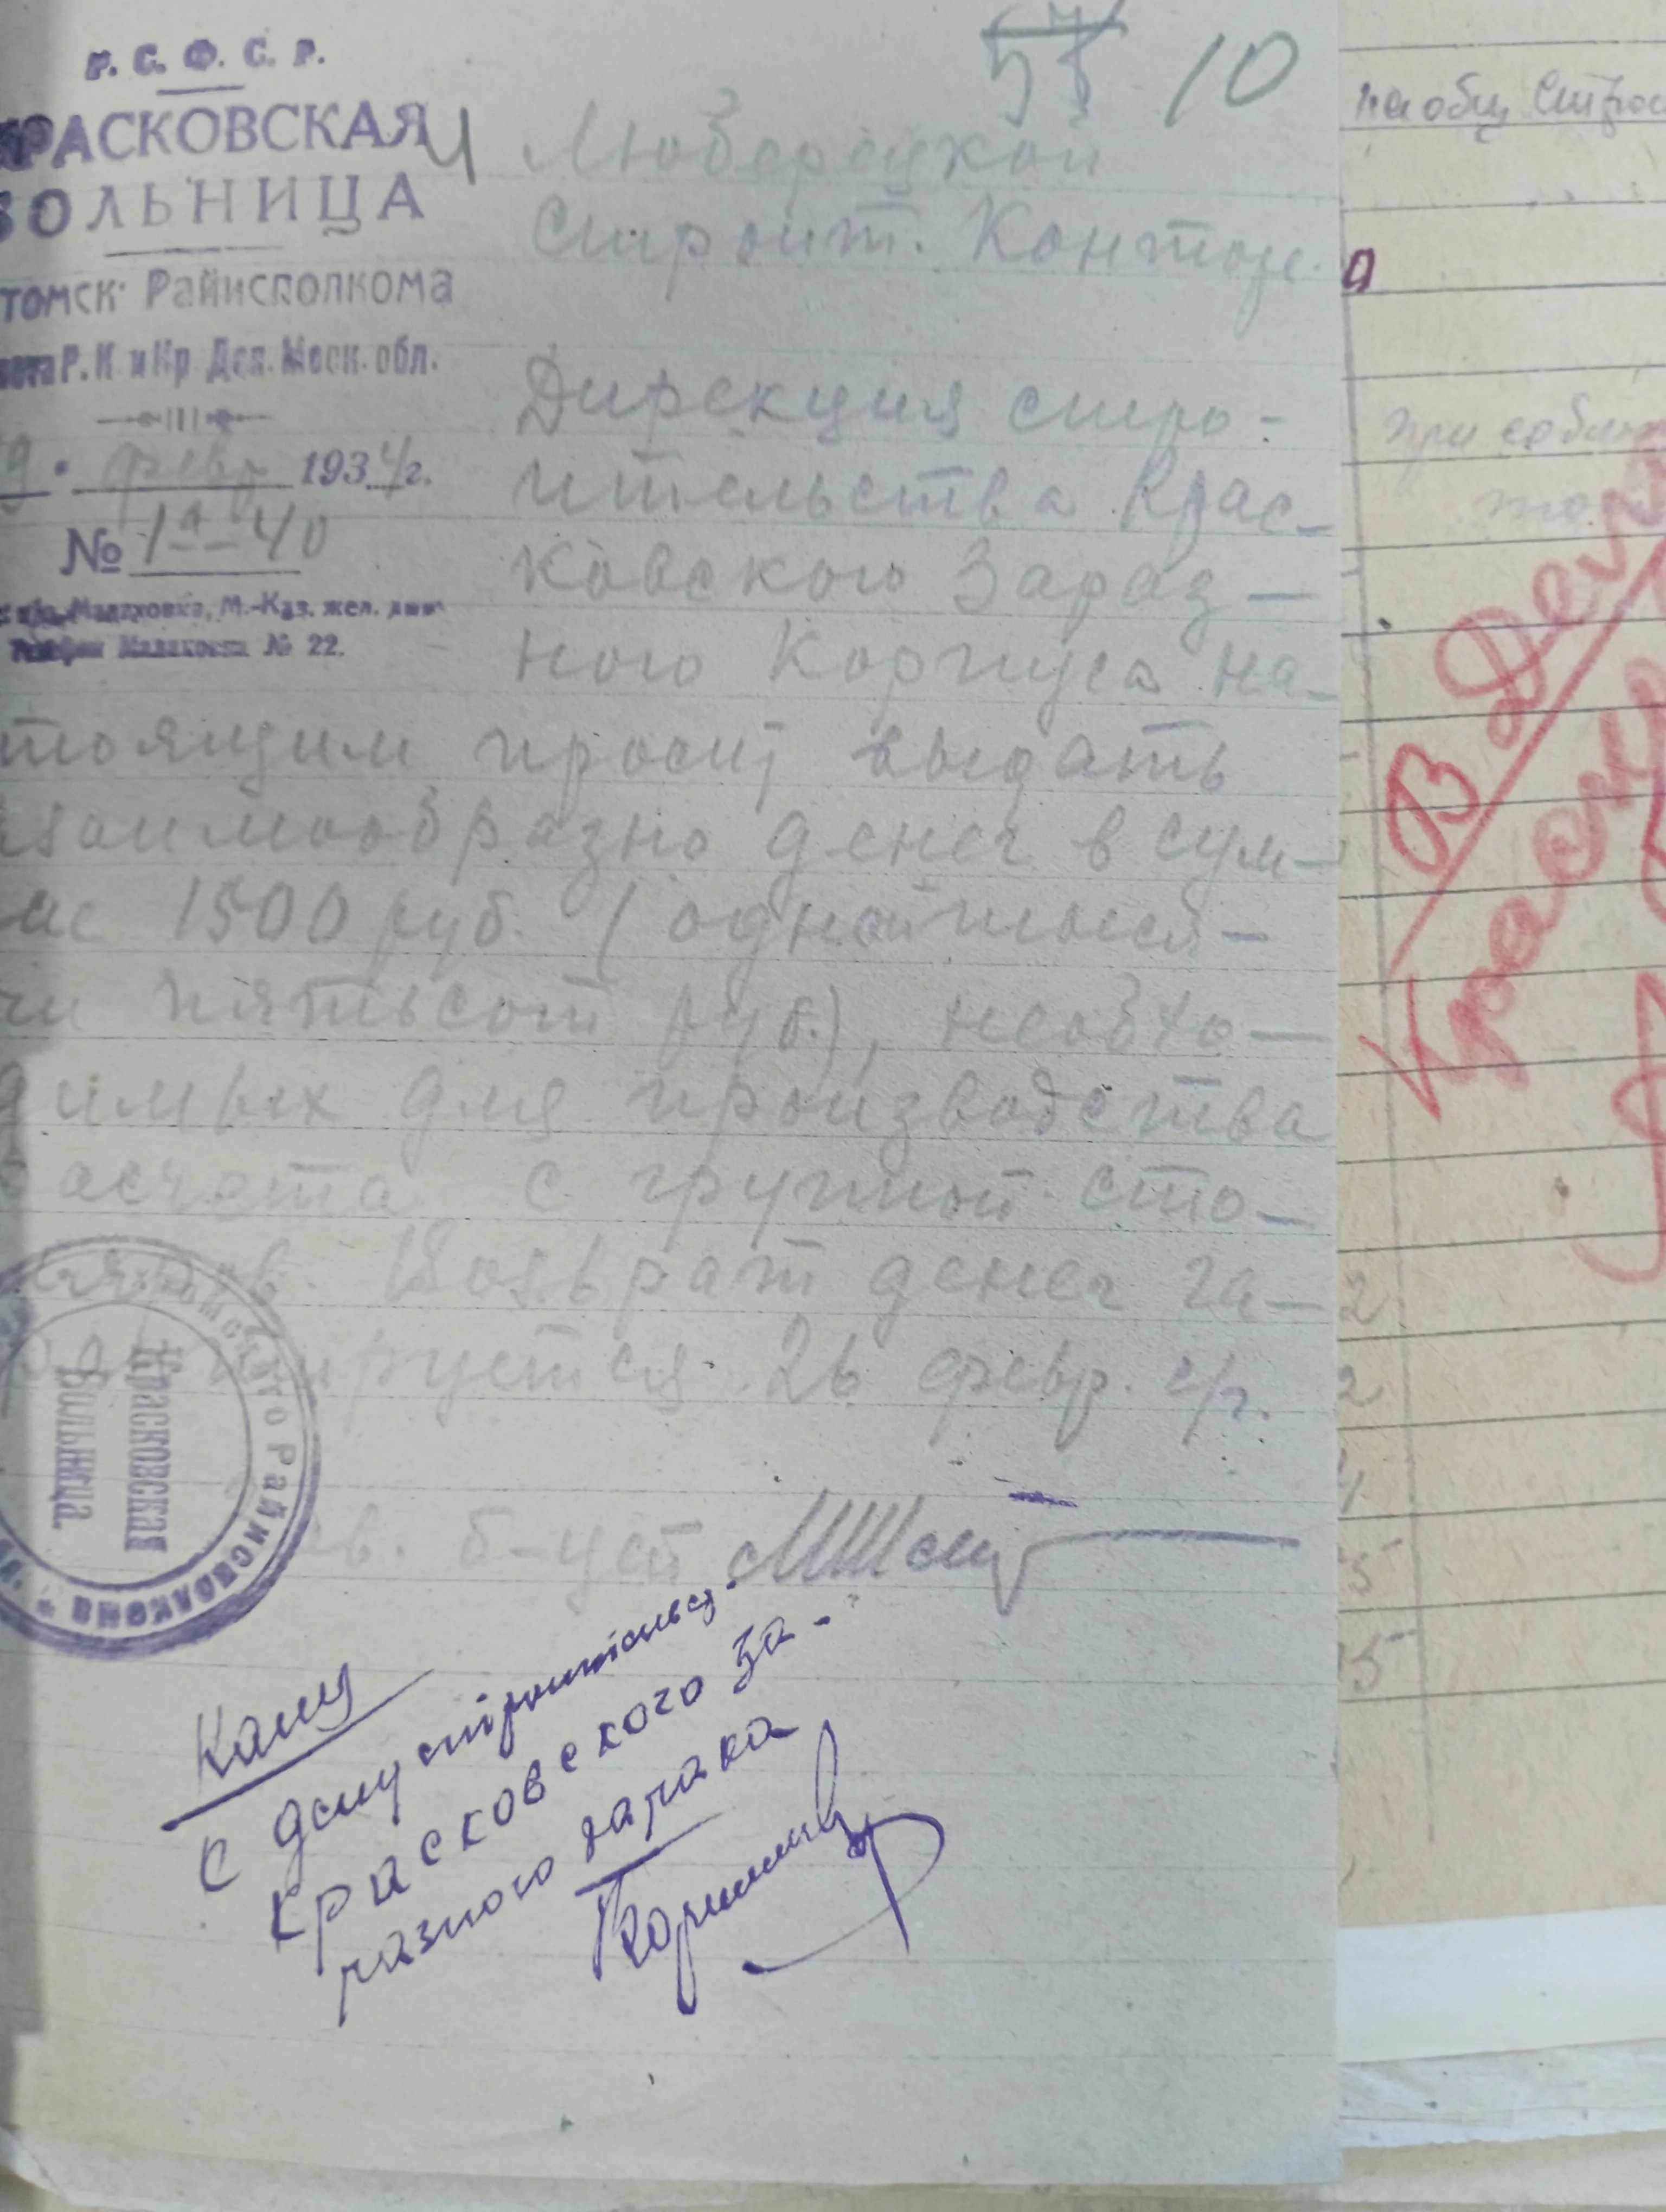 Р. С. Ф. С. Р.
КРАСКОВСКАЯ
БОЛЬНИЦА
томск. Райисполкома
Р. К. и Кр. Деп. Моск. обл.
9. февр 1934 г.
№ 1-40
Малаховка, М.-Каз. жел.
Телефон Малаховка № 22.
10
Люберецкой
Строит. Конторе.
Дирекция стро-
ительства Крас-
ковского Зараз-
ного Корпуса на-
тоящим просит выдать
заимообразно денег в сум-
ме 1500 руб. (одной тыся-
чи пятьсот руб.), необхо-
димых для производства
расчета с группой сто-
ляров. Возврат денег га-
рантируется 26 февр. с/г.
Зав. б-цей
Красковская
Больница.
Райисполкома
С дому строительст.
Красковского За-
разного барака
на общ
В Дело